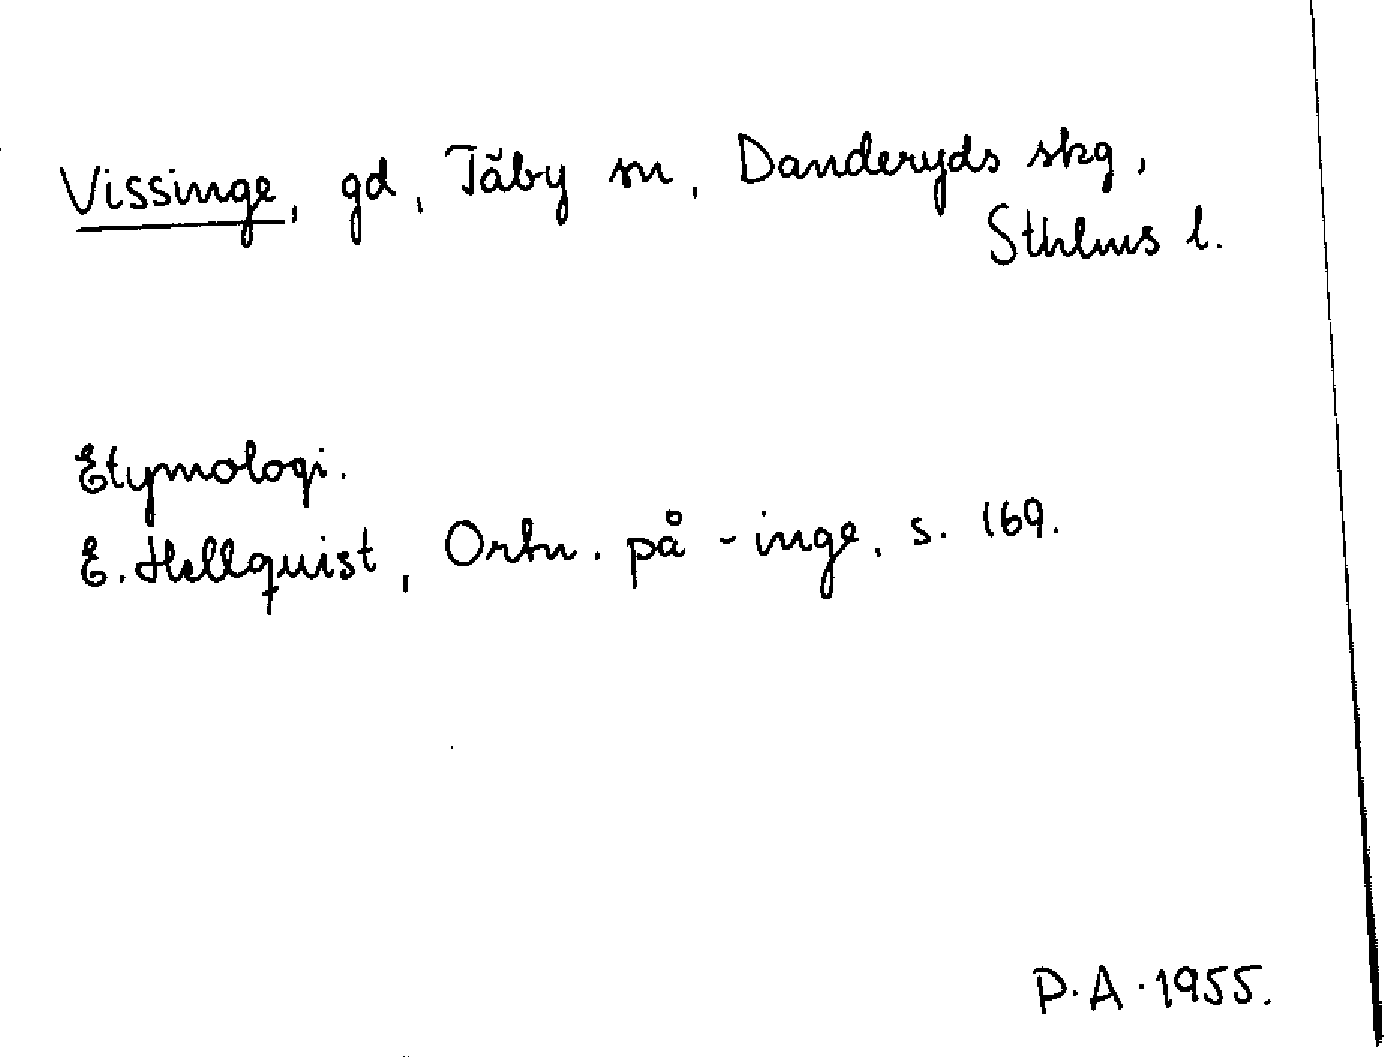 Vissinge, gd, Täby sn, Danderyds skg,
Sthlms l.
Etymologi.
E. Hellquist, Ortn. på -inge, s. 169.
P.A. 1955.